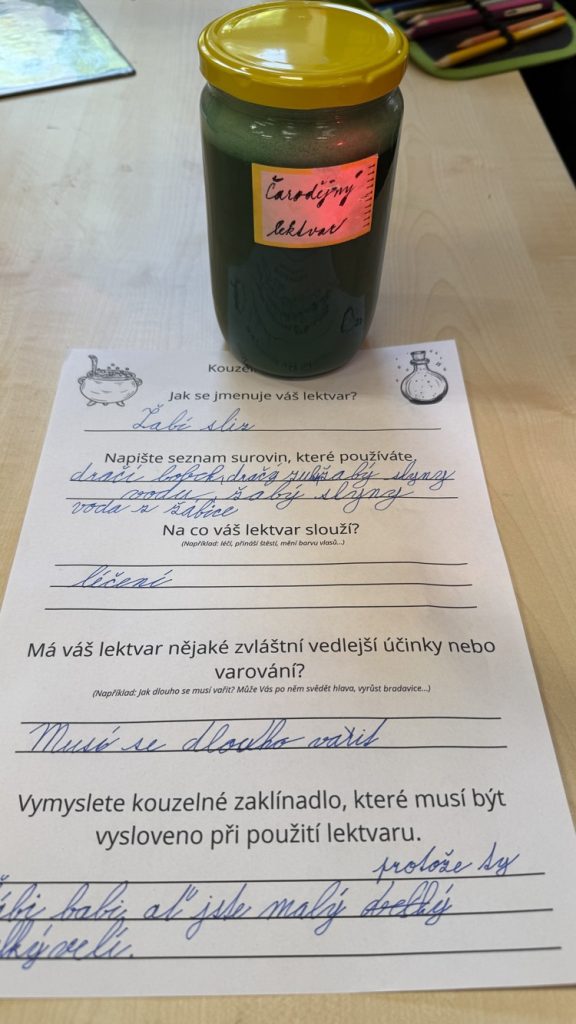 Čarodějný
lektvar
Kouzel
Jak se jmenuje váš lektvar?
Žabí sliz
Napište seznam surovin, které používáte.
dračí bobek, dračý zub, žabý slyny
vodu, žabý slyny
voda z žábice
Na co váš lektvar slouží?
(Například: léčí, přináší štěstí, mění barvu vlasů...)
léčení
Má váš lektvar nějaké zvláštní vedlejší účinky nebo
varování?
(Například: Jak dlouho se musí vařit? Může Vás po něm svědět hlava, vyrůst bradavice...)
Musí se dlouho vařit
Vymyslete kouzelné zaklínadlo, které musí být
vysloveno při použití lektvaru.
protože ty
babi, ať jste malý